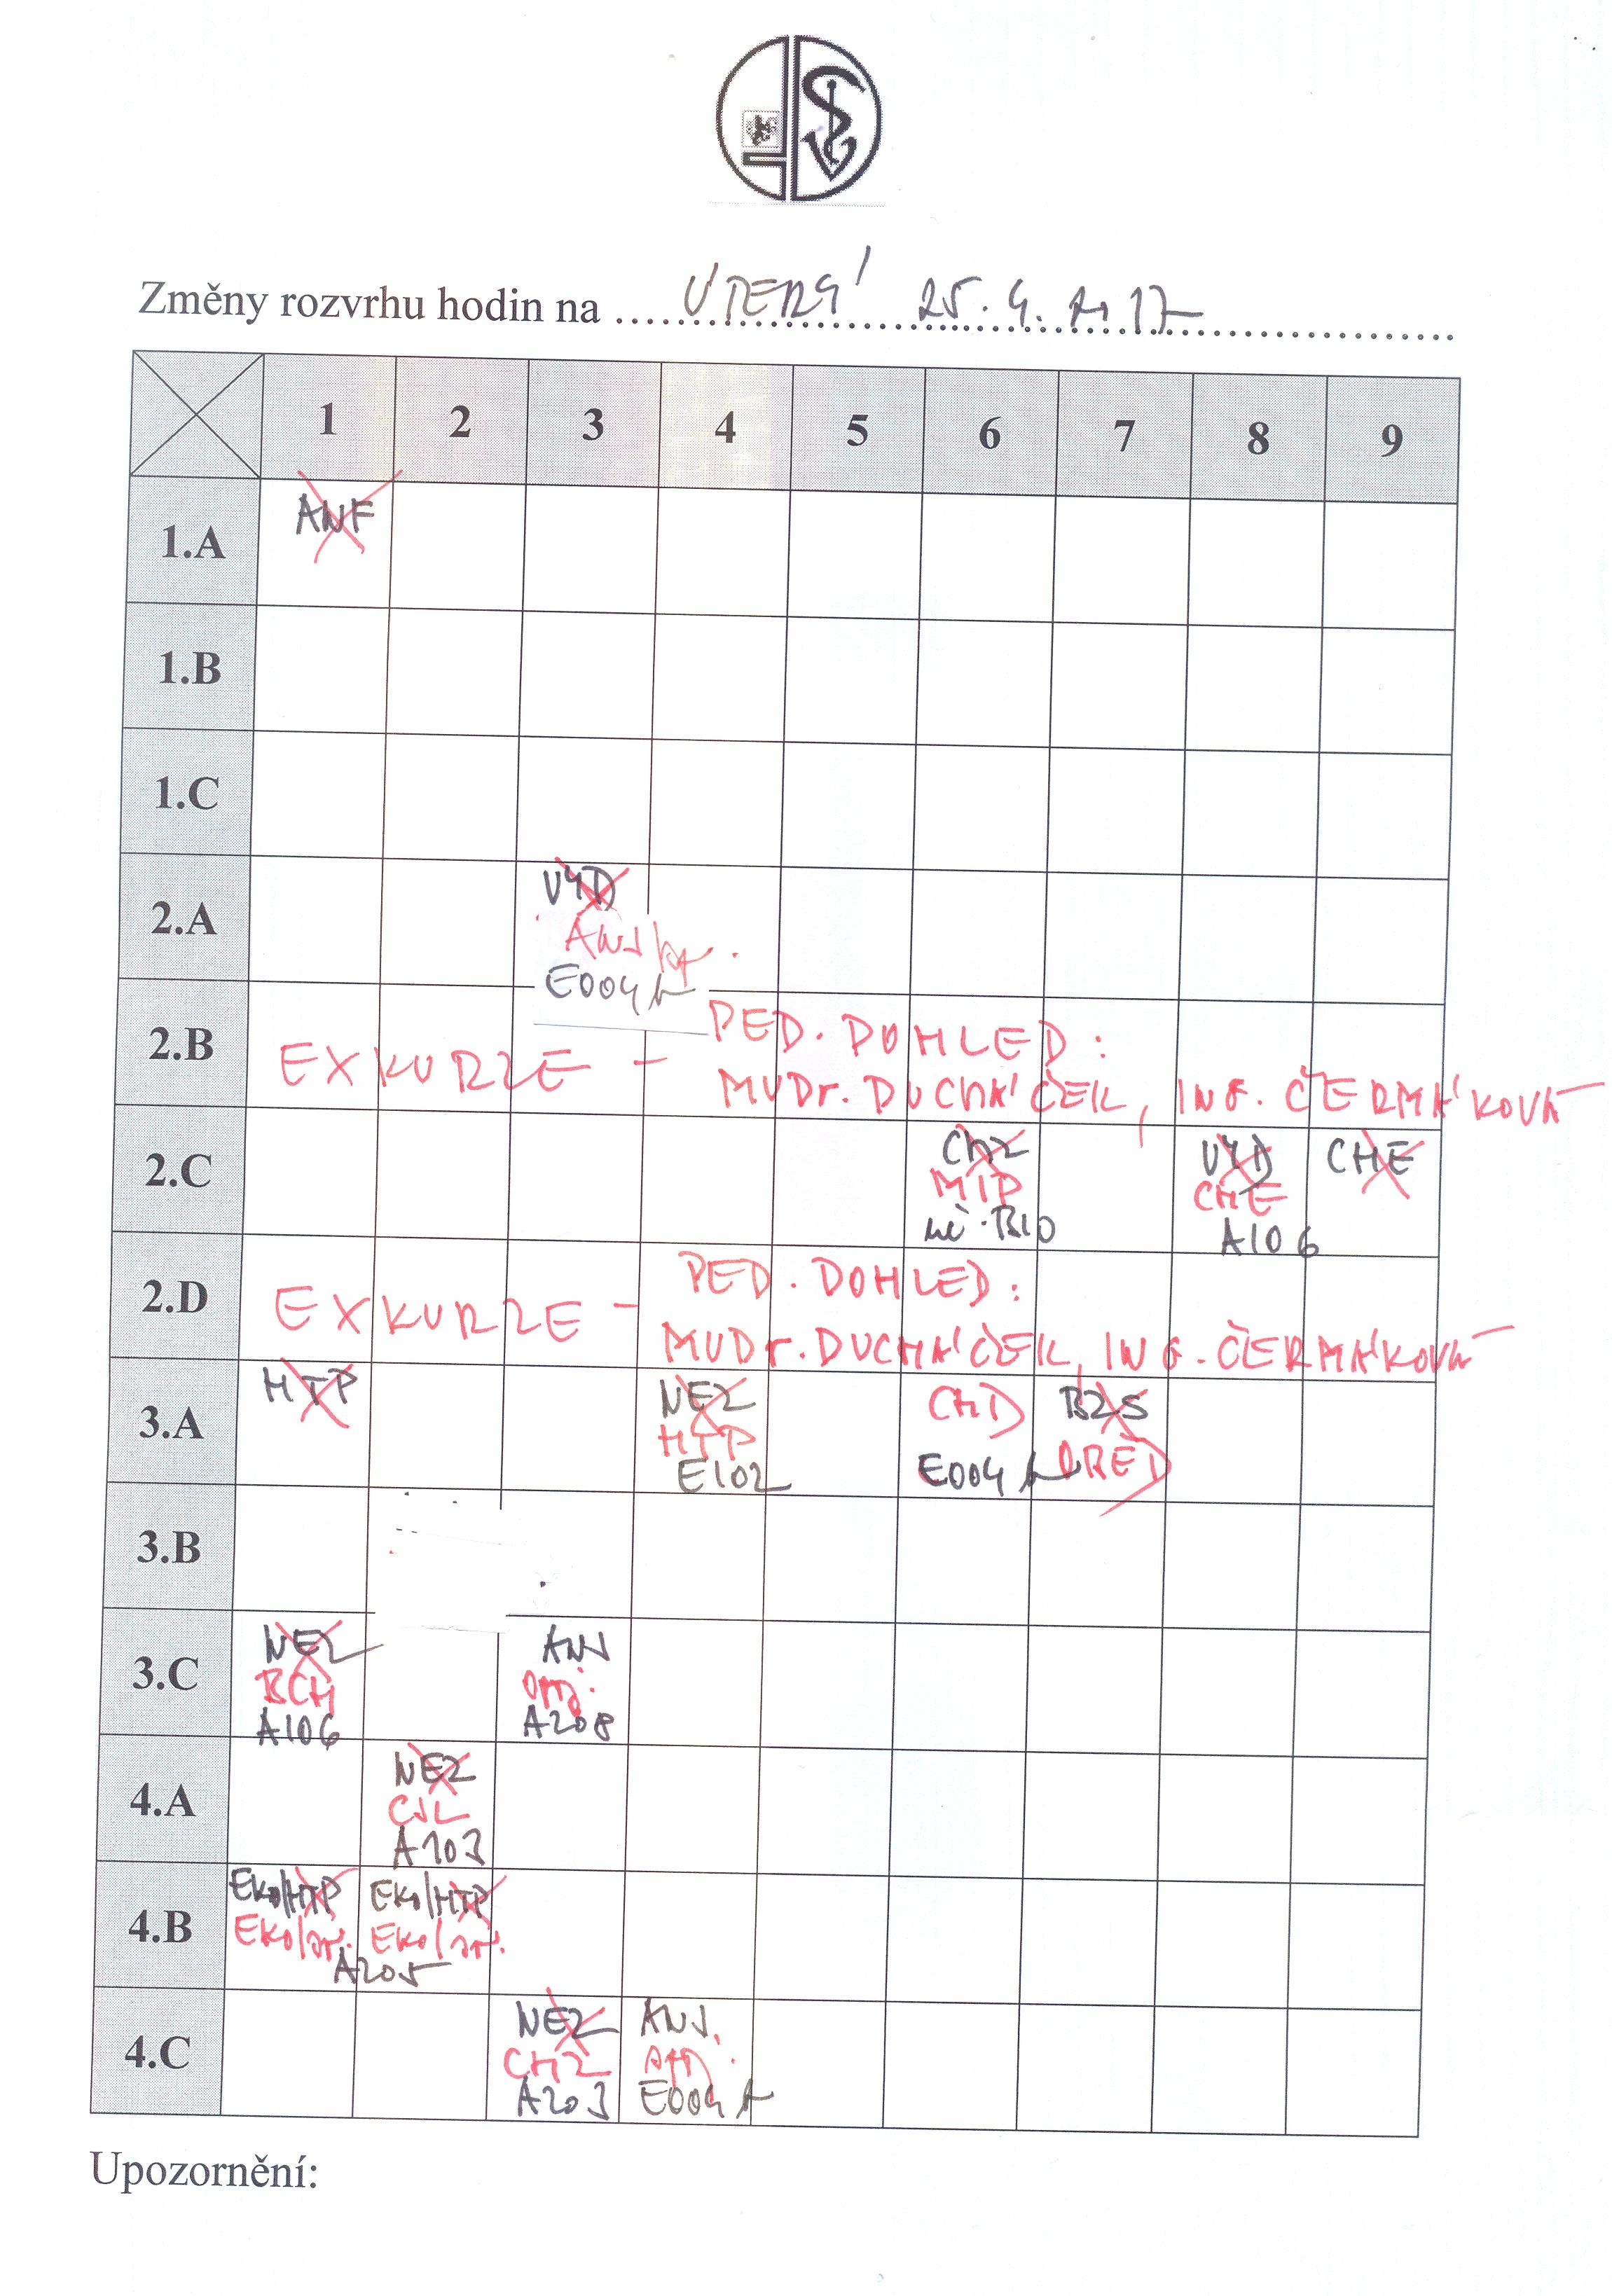 Změny rozvrhu hodin na ÚTERÝ 25.4.2017
1 2 3 4 5 6 7 8 9
1.A ANF
1.B
1.C
2.A VYD
ANJ
E004
2.B EXKURZE - PED. DOHLED:
MUDr. DUCHÁČEK, ING. ČERMÁKOVÁ
2.C CHZ VYD CHE
MIP CHE
BIO A106
2.D EXKURZE - PED. DOHLED:
MUDr. DUCHÁČEK, ING. ČERMÁKOVÁ
3.A HTP NEZ CHD BZS
HTP OBĚD
E102 E004
3.B
3.C NEZ ANJ
BCH odp.
A106 A208
4.A NEZ
CJL
A103
4.B Eko/HTP Eko/HTP
Eko/ Eko/
A205
4.C NEZ ANJ
CHZ odp.
A203 E004
Upozornění: